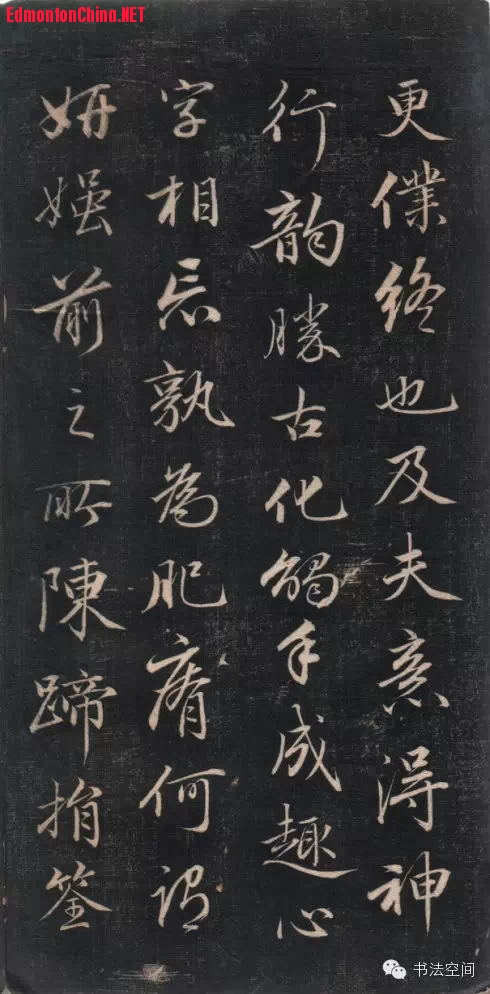 EdmontonChina.NET
更僕終也及夫意得神
行韵勝古化觸手成趣心
字相忘孰為肥瘠何謂
妍媸前之所陳蹄捐筌
书法空间